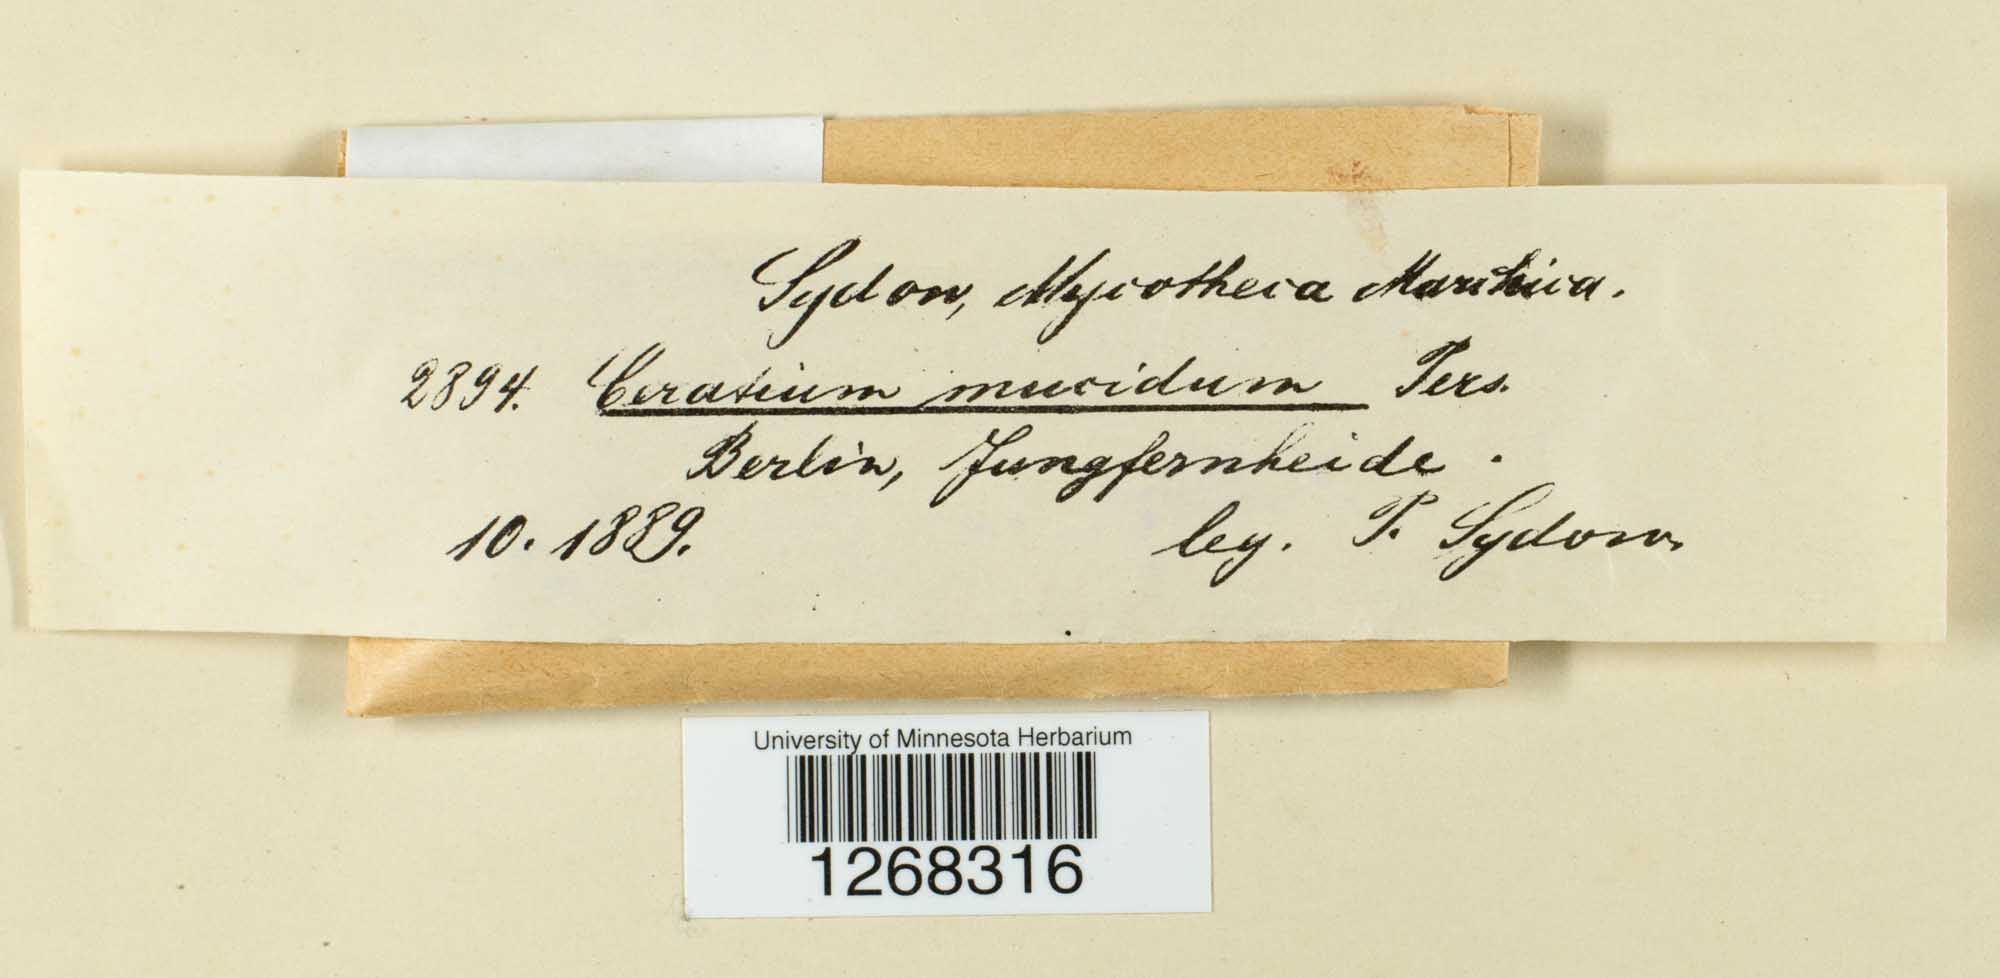 Sydow, Mycotheca Marchica.
2894. Ceratium mucidum Pers.
Berlin, Jungfernheide.
10. 1889. leg. P. Sydow.
University of Minnesota Herbarium
1268316